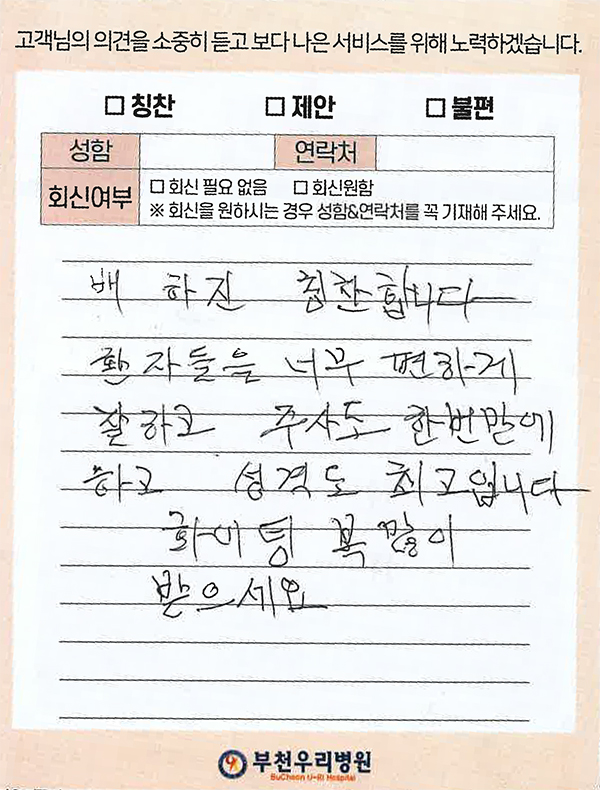 고객님의 의견을 소중히 듣고 보다 나은 서비스를 위해 노력하겠습니다.
□ 칭찬 □ 제안 □ 불편
성함 연락처
회신여부 □ 회신 필요 없음 □ 회신원함
※ 회신을 원하시는 경우 성함&연락처를 꼭 기재해 주세요.
배 하진 칭찬합니다
환자들을 너무 편하게
잘하고 주사도 한번만에
하고 성격도 최고입니다
화이팅 복 많이
받으세요
부천우리병원
BuCheon U-RI Hospital